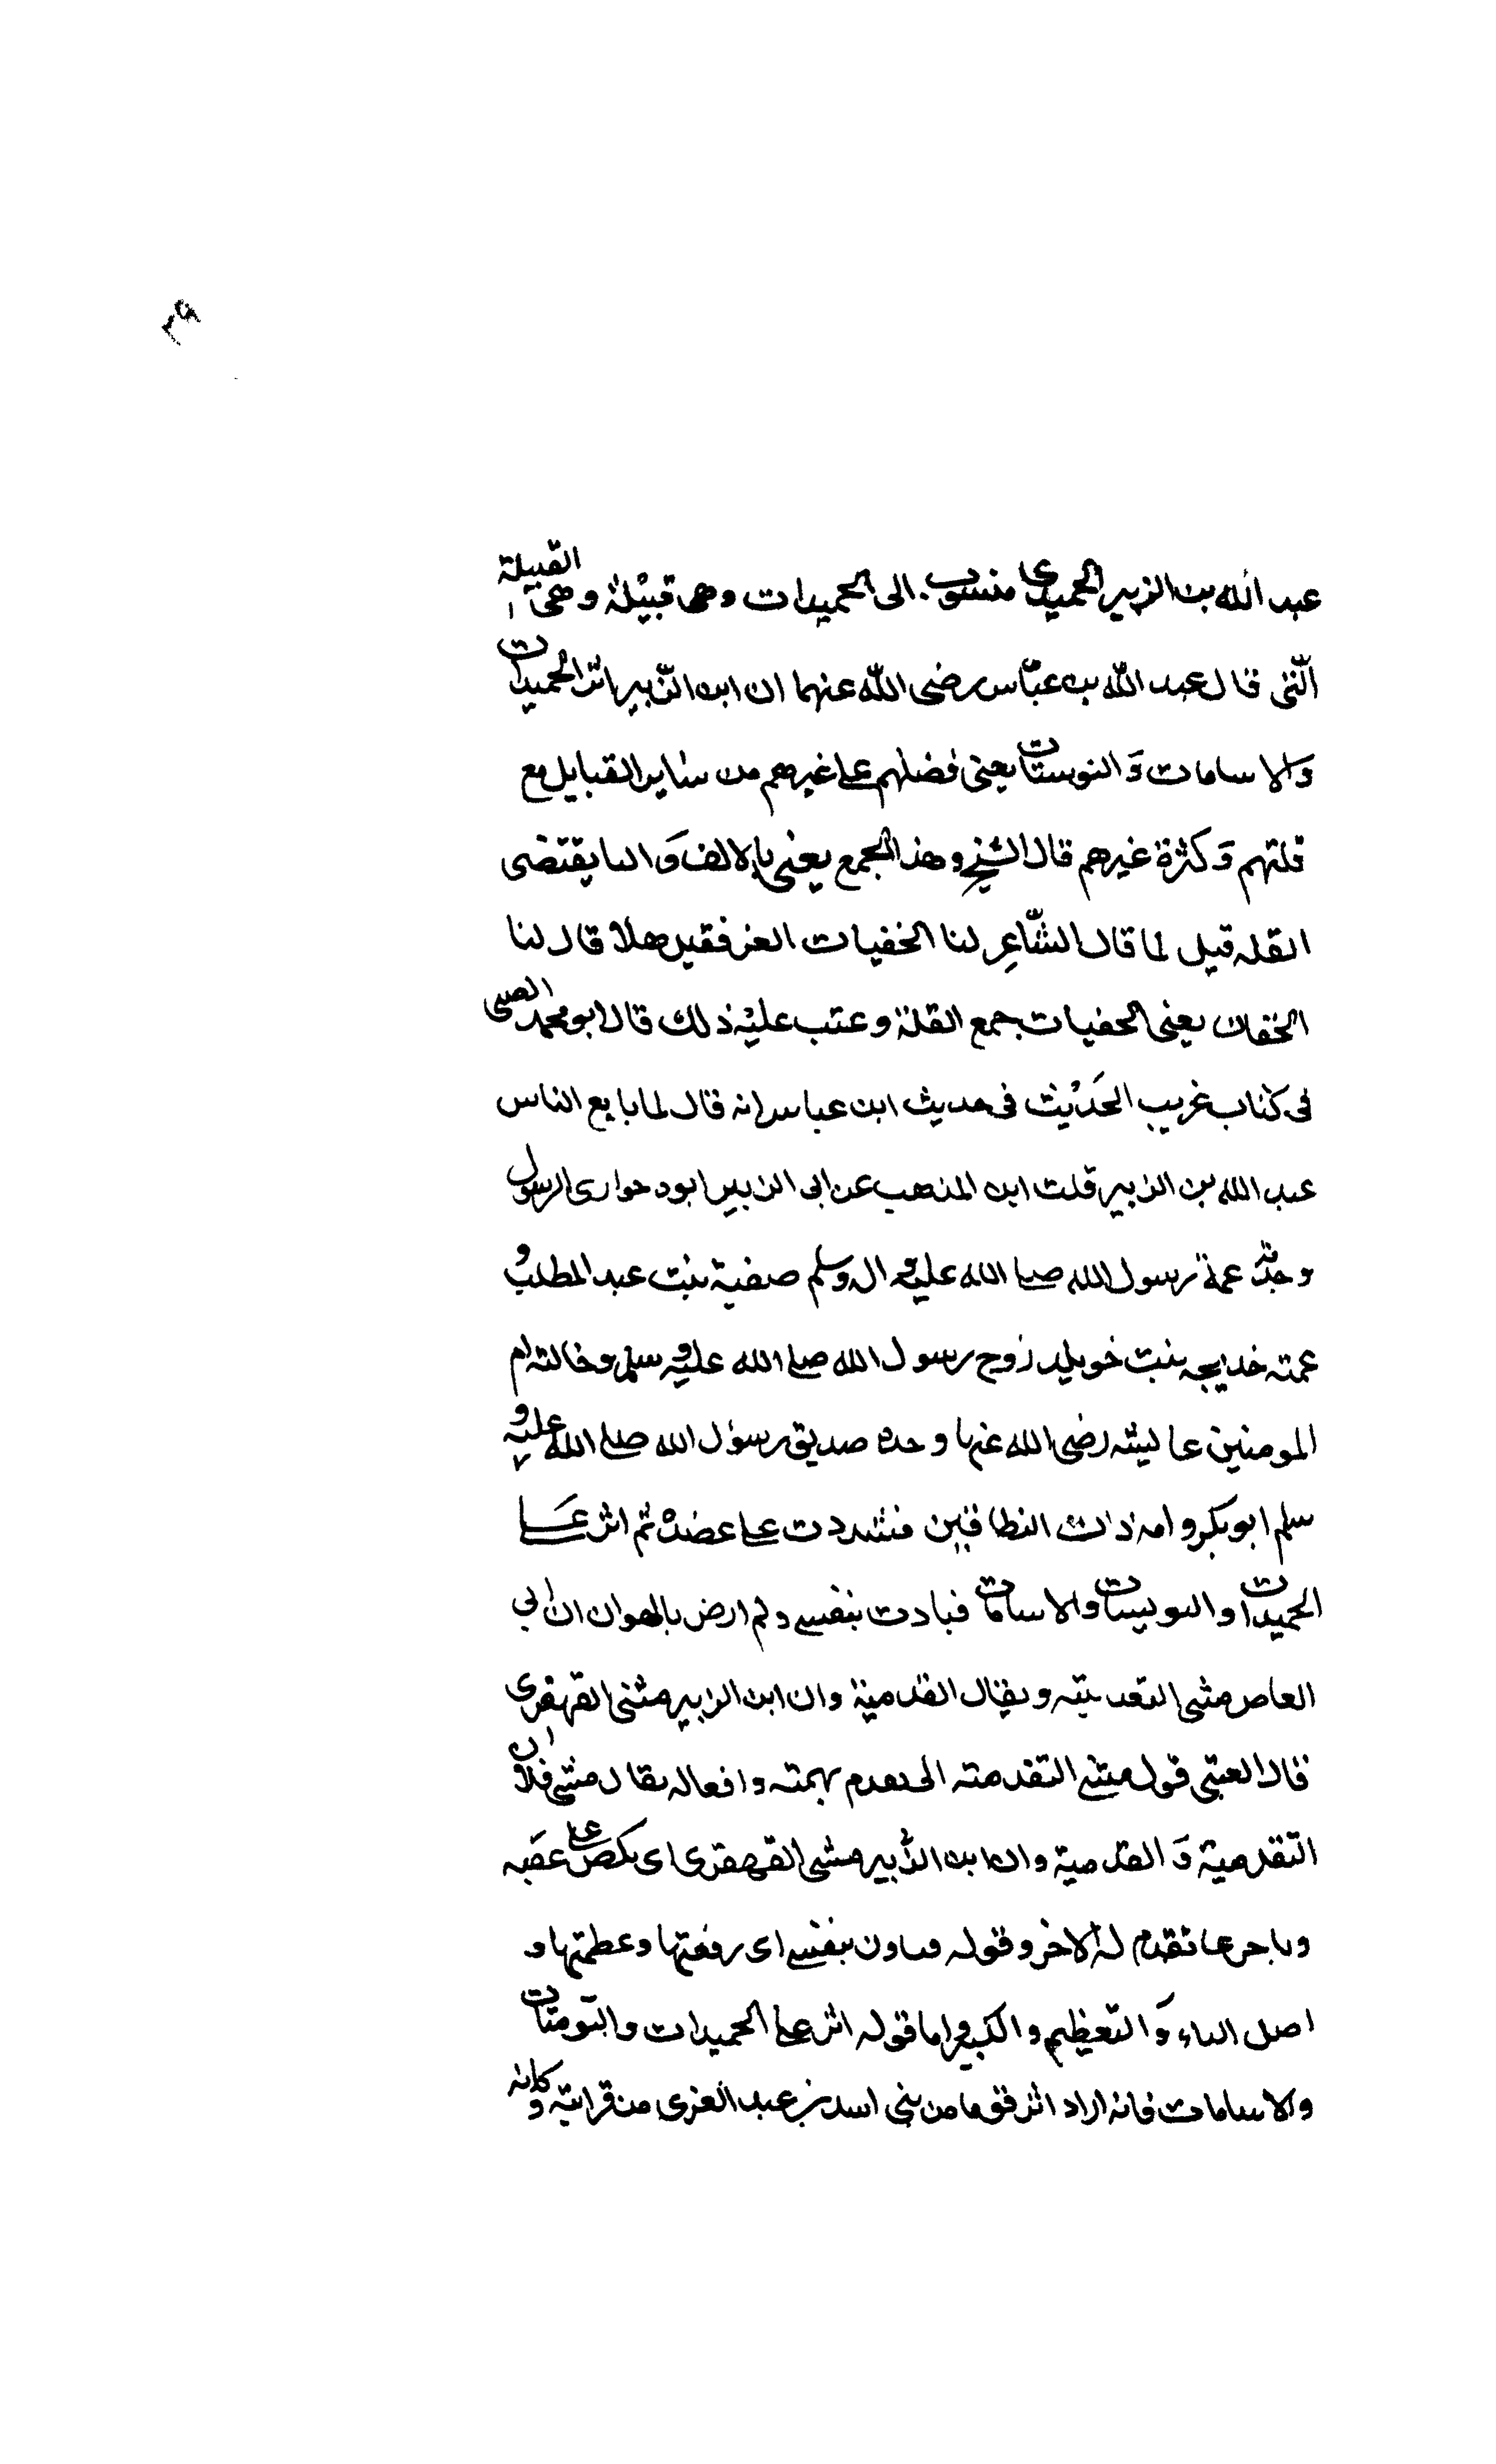 ٢٩
عبد الله بن الزبير الحميدي منسوب الى الحميدات وهى قبيلة وهى القبيلة
الّتى قال عبد الله بن عبّاس رضى الله عنهما ان ابن الزّبير اثر الحميدات
والاسامات وَالتويتات يعنى فضلهم على غيرهم من ساير القبايل مع
قلتهم وَكثرة غيرهم قال الشيخ وهذا الجمع يعنى بالالف وَالتا يقتضى
القله قيل لما قال الشّاعِر لنا الخفيات الغر فقيل هلا قال لنا
الخفان يعنى الحفيات جمع القلة وعتب عليْه ذلك قال ابو محمد
فى كتاب غريب الحَديْث فى حديث ابن عباس انه قال لما بايع الناس
عبد الله بن الزبير قلت اين المذهب عن ابن الزبير ابوه حوارى الرسول
وجدّته عمة رسول الله صلى الله عليه وال وسلم صفية بنت عبد المطلب و
عمته خديجه بنت خويلد زوج رسول الله صلى الله عليه وسلم وخالته ام
المومنين عايشه رضى الله عنها وجده صديق رسول الله صلى الله عليه و
سلم ابو بكر وامه ذات النطاقين فشددت على عضده ثم اثر على
الحميدات والتويتات والاسامات فبادت بنفسى ولم ارض بالهوان ان ابن ابي
العاص مشى التقدميته ويقال القدمية وان ابن الزبير مشى القهقرى
قال العتبى قول مشى التقدمته الى تقدم بهمته وافعاله يقال مشى فلان
التقدمية وَالقدمية وان ابن الزّبير مشى القهقرى اى نكص على عقبه
وتاخر عما تقدم له الاخر وقوله فباون بنفسى اى رفعتها وعظمتها و
اصل الباء وَالتعظيم والكبر واما قوله اثر على الحميدات والتويتات
والاسامات فانه اراد اثر قوما من بنى اسد بن عبد العزى من قرابته وكانه